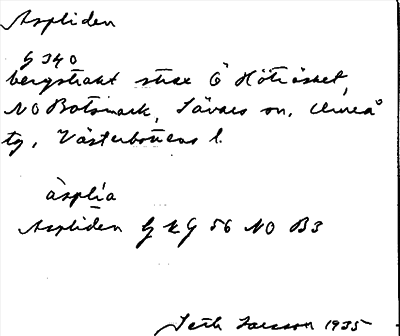 Aspliden
G 340
bergstrakt strax Ö Höträsket,
NO Botsmark, Sävars sn, Umeå
tg, Västerbottens l.
àsplía
Aspliden G K G 56 NO B3
Seth Larsson 1935